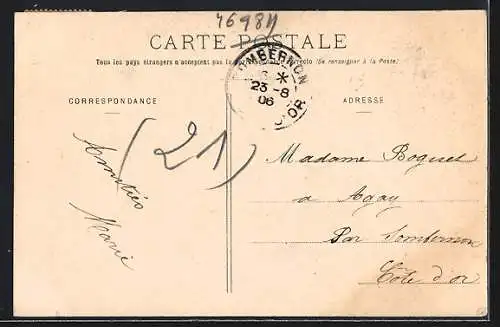 46984
CARTE POSTALE
Tous les pays étrangers n'acceptent pas la correspondance au recto (Se renseigner à la Poste)
SOMBERNON
6 *
23 -8
06
D'OR
CORRESPONDANCE
ADRESSE
(21)
Amitiés
Marie
Madame Boguet
a Agay
Par Sombernon
Côte d'or